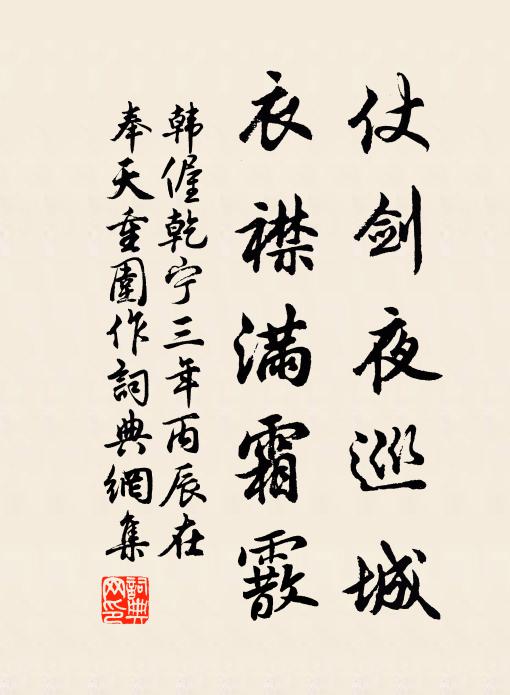 仗剑夜巡城
衣襟满霜霰
韩偓乾宁三年丙辰在
奉天重围作词典網集
詞典网印